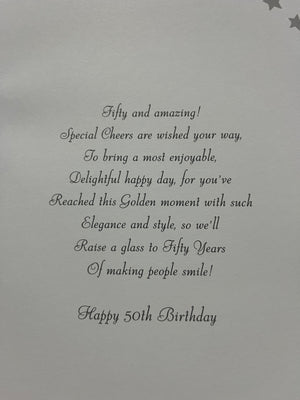 Fifty and amazing!
Special Cheers are wished your way,
To bring a most enjoyable,
Delightful happy day, for you've
Reached this Golden moment with such
Elegance and style, so we'll
Raise a glass to Fifty Years
Of making people smile!
Happy 50th Birthday